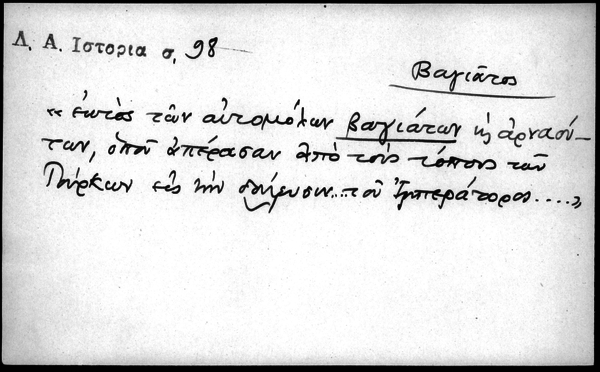 Λ. Α. Ιστορια σ. 98
Βαγιᾶτος
« ἐκτὸς τῶν αὐτομόλων Βαγιάτων κ̀ ἀρναού-
των, ὁποῦ ἀπέρασαν ἀπὸ τοὺς τόπους τῶν
Τούρκων εἰς τὴν ... τοῦ Ἰμπεράτορος .... »